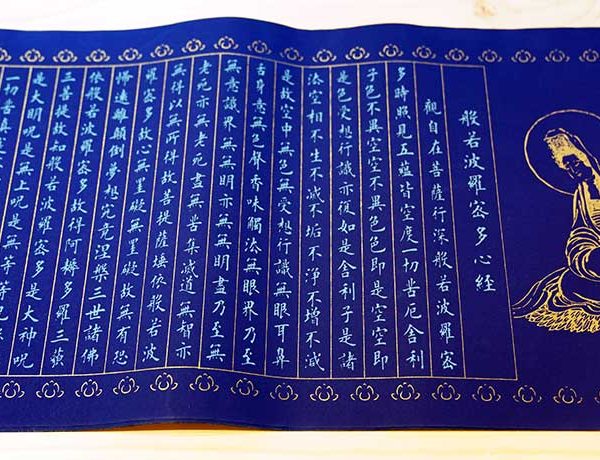 般若波羅密多心経
觀自在菩薩行深般若波羅密
多時照見五蘊皆空度一切苦厄舍利
子色不異空空不異色色即是空空即
是色受想行識亦復如是舍利子是諸
法空相不生不滅不垢不淨不增不減
是故空中無色無受想行識無眼耳鼻
舌身意無色聲香味觸法無眼界乃至
無意識界無無明亦無無明盡乃至無
老死亦無老死盡無苦集滅道無智亦
無得以無所得故菩提薩埵依般若波
羅密多故心無罣礙無罣礙故無有恐
怖遠離顛倒夢想究竟涅槃三世諸佛
依般若波羅密多故得阿耨多羅三藐
三菩提故知般若波羅密多是大神呪
是大明呪是無上呪是無等等呪
一切苦真